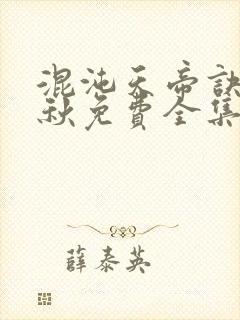 混沌天帝訣
秋免費全集
薛泰英